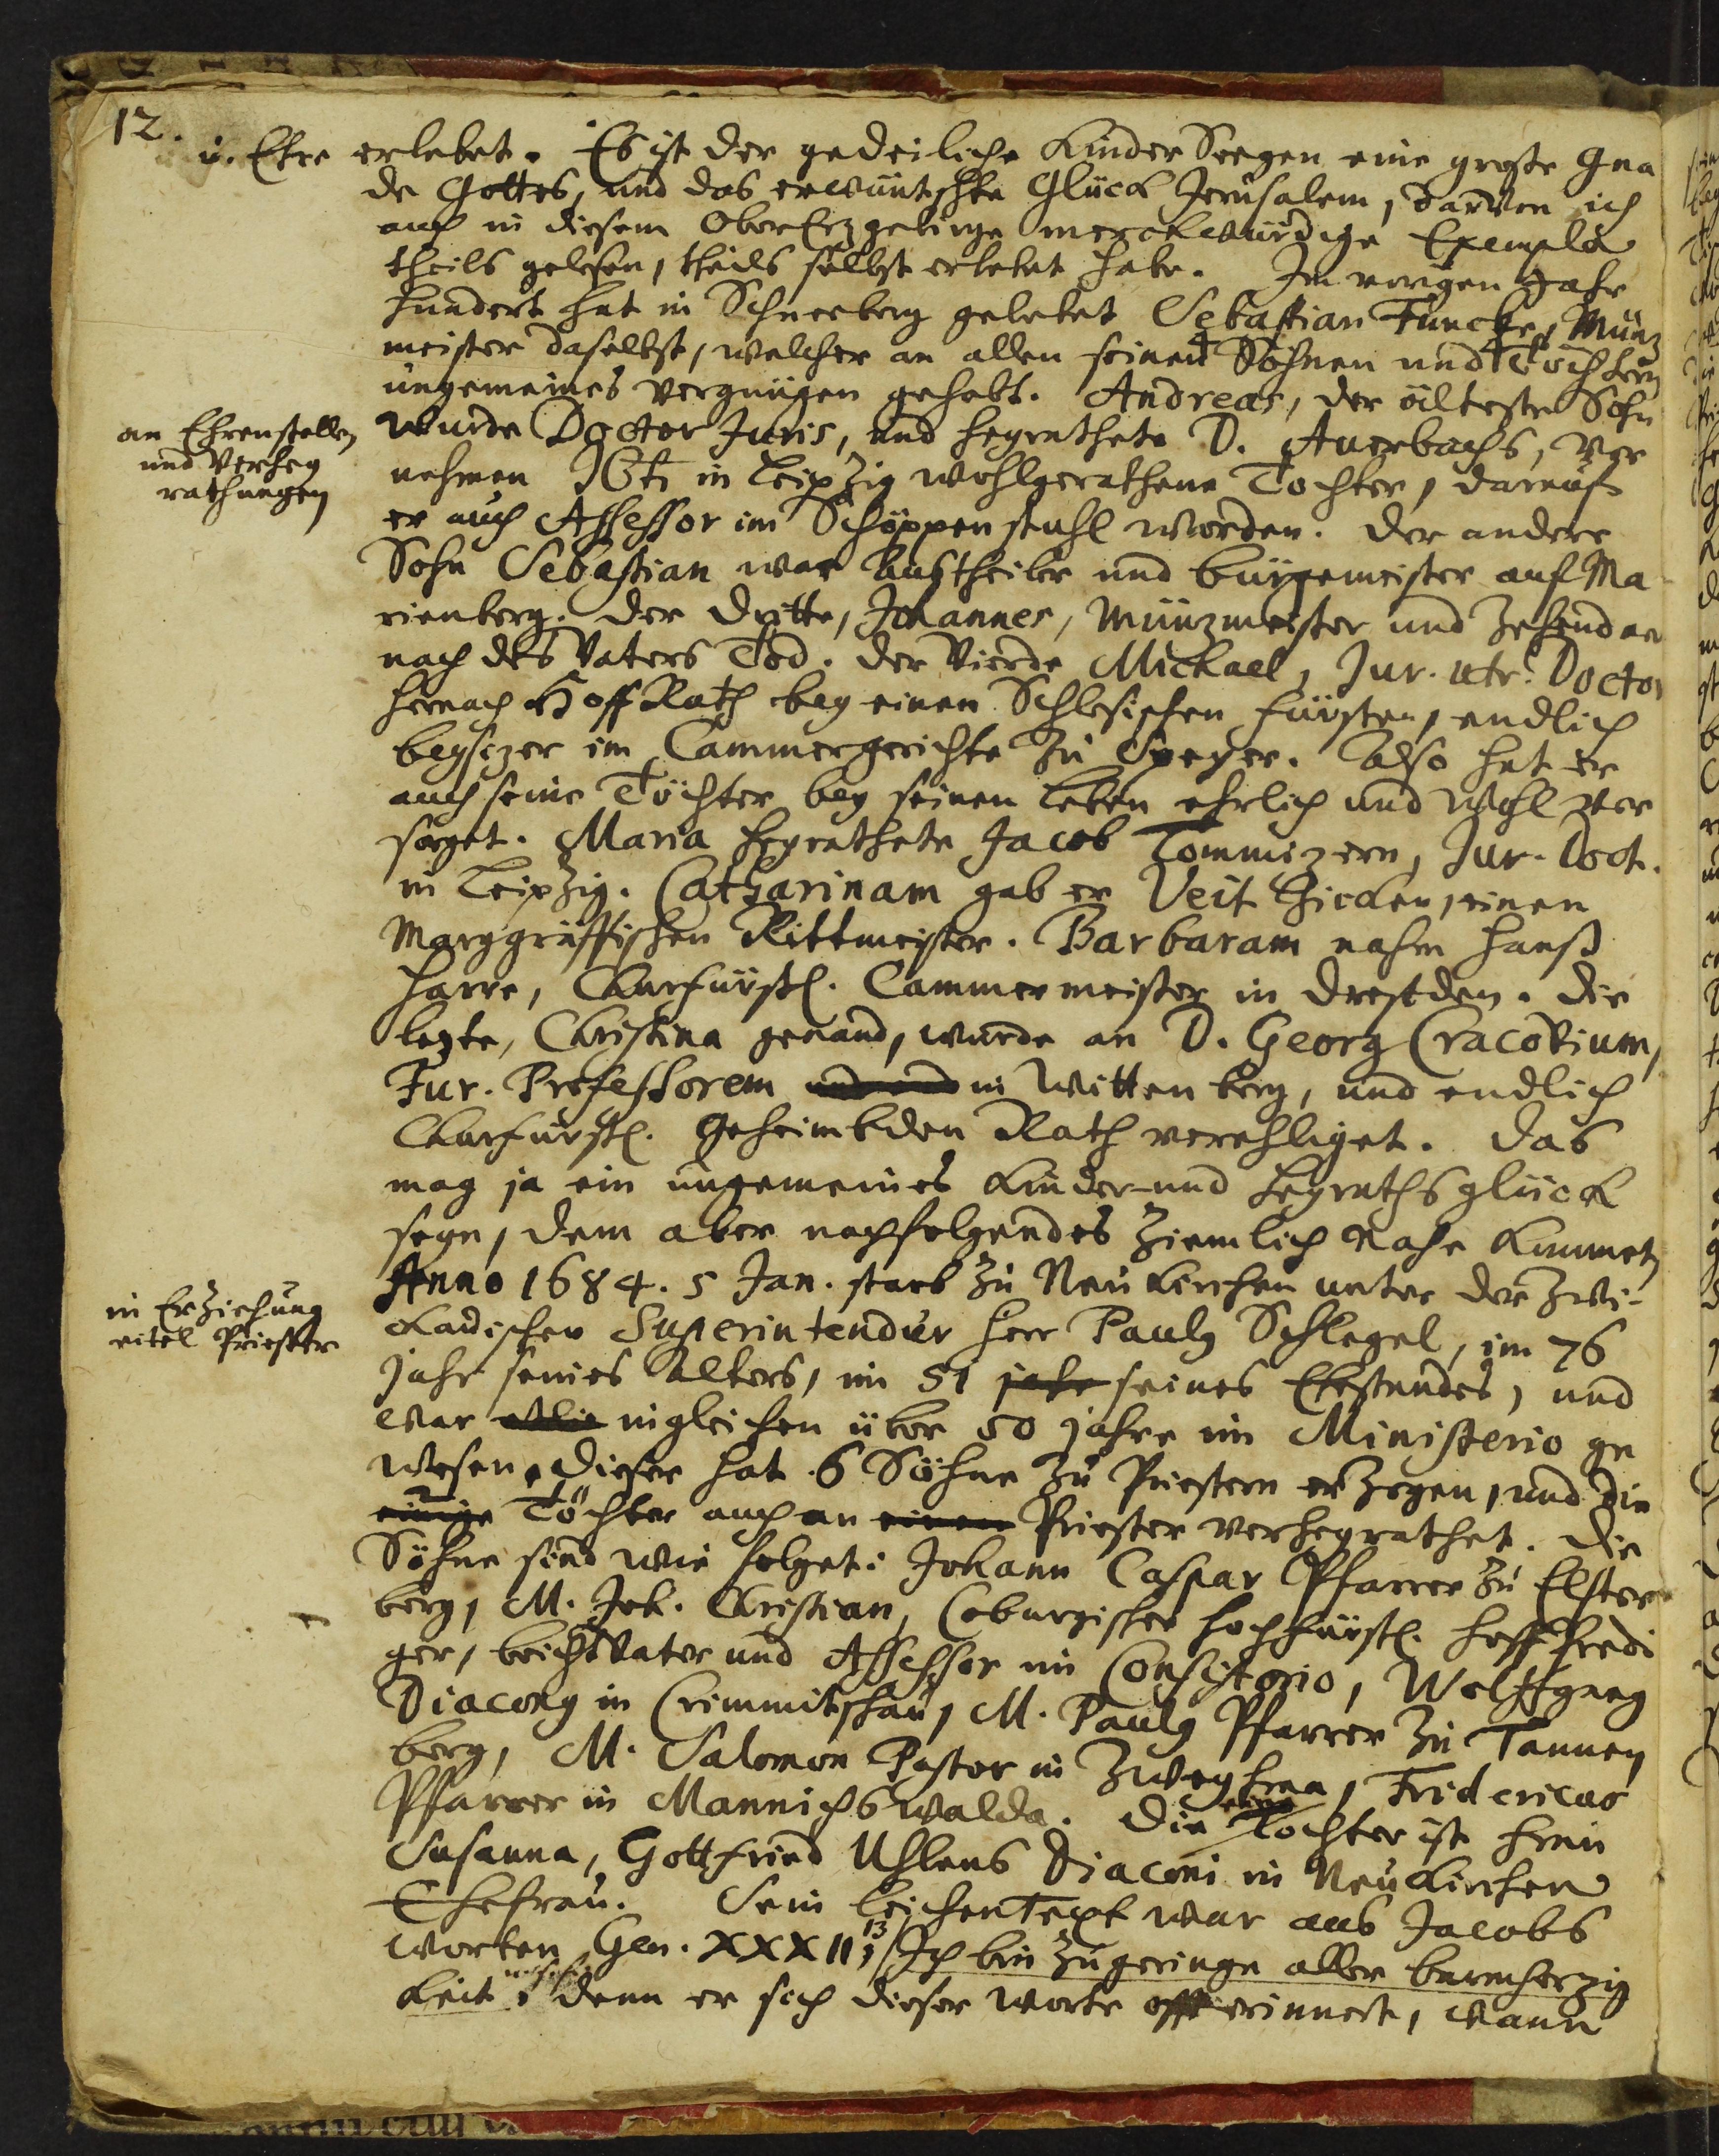 12.
u. Ehre erlebet. Es ist der gedeiliche Kinder Seegen eine große Gna
de Gottes, und das erwüntschte Glück Jerusalem, darvon ich
auch in diesem OberErzgebirge merckwürdige Exempla
theils gelesen, theils selbst erlebet habe. Im vorigen Jahr
hundert hat in Schneeberg gelebet Sebastian Funcke, Münz
meister daselbst, welcher an allen seinen Söhnen und Töchtern
ungemeines Vergnügen gehabt. Andreas, der älteste Sohn
an Ehrenstellen
und Verhey
rathungen
wurde Doctor Juris, und heyrathete D. Auerbachs, vor
nehmen JCti in Leipzig wohlgerathene Tochter, darauf
er auch Assessor im Schöppenstuhl worden. Der andere
Sohn Sebastian war Austheiler und Bürgemeister auf Ma
rienberg. Der dritte, Johannes, Münzmeister und Zehendner
nach des Vaters Tod. Der Vierde Michael, Jur. utr. Doctor
hernach Hoff Rath bey einen Schlesischen Fürsten, endlich
beysizer im Cammergerichte zu Speyer. Also hat er
auch seine Töchter bey seinen Leben ehrlich und wohl ver
sorget. Maria heyrathete Jacob Tommizern, Jur. Doct.
in Leipzig. Catharinam gab er Veit Hicken, einen
Marggräffischen Rittmeister. Barbaram nahm Hanß
Harre, Churfürstl. Cammermeister in Dreßden. Die
lezte, Christina genand, wurde an D. Georg Cracovium,
Jur. Professorem in Wittenberg, und endlich
Churfürstl. Geheimbden Rath verehliget. Das
mag ja ein ungemeines Kinder-und Heyraths glück
seyn, dem aber nachfolgendes ziemlich nahe kummet,
in Erziehung
eitel Priester
Anno 1684. 5 Jan. starb zu Neukirchen unter der Zwi-
ckauischen Superintendur Herr Paulg Schlegel, im 76
Jahr seines Alters, im 51 jahr seines Ehestandes, und
war ingleichen über 50 jahre im Ministerio ge
wesen, dieser hat 6 Söhne zu Priestern erzogen, und die
einige Töchter auch an einen Priester verheyrathet. Die
Söhne sind wie folget: Johann Caspar Pfarrer zu Elster
berg, M. Joh. Christian, Coburgischer Hochfürstl. Hoffpredi
ger, beichtVater und Assessor im Consistorio, Wolffgang
Diacong in Crimmitschau, M. Paulg Pfarrer zu Tannen
berg, M. Salomon Pastor in Zwey, Fridericus
Pfarrer in Mannichswalda. Die eine Tochter ist Frau
Susanna, Gottfried Uhlens Diaconi in Neukirchen
Ehefrau. Sein LeichenText war aus Jacobs
worten Gen. XXXII, 13 Ich bin zu geringe aller barmherzig
keit, denn er sich dieser worte offt erinnert, wann